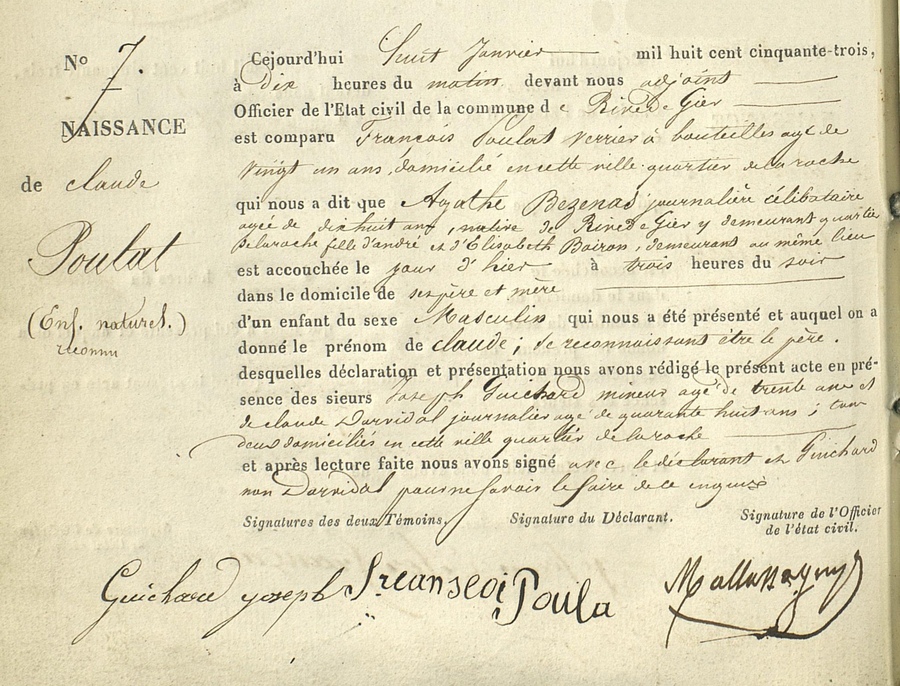 N° 7.
NAISSANCE
de claude
Poulat
(Enf. naturel.)
reconnu
Cejourd'hui huit Janvier mil huit cent cinquante-trois,
à Dix heures du matin devant nous adjoint
Officier de l'Etat civil de la commune de Rive De Gier
est comparu François Poulat verrier à bouteilles agé de
vingt un ans, domicilié en cette ville quartier de la roche
qui nous a dit que Agathe Bezenas journalière célibataire
agée de dix huit ans, native de Rive De Gier y demeurant quartier
De la roche fille d'andré et d'Elisabeth Boiron, demeurant au même lieu
est accouchée le jour d'hier à trois heures du soir
dans le domicile de ses père et mère
d'un enfant du sexe Masculin qui nous a été présenté et auquel on a
donné le prénom de claude; se reconnaissant être le père.
desquelles déclaration et présentation nous avons rédigé le présent acte en pré-
sence des sieurs Joseph Guichard mineur agé de trente ans et
de claude Darvidal journalier agé de quarante huit ans; tous
deux domiciliés en cette ville quartier de la roche
et après lecture faite nous avons signé avec le déclarant et Guichard
non Darvidal pour ne savoir le faire de ce enquis
Signatures des deux Témoins,
Signature du Déclarant.
Signature de l'Officier
de l'état civil.
Guichard joseph
Franseoi Poula